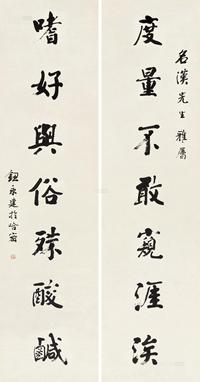 名漢先生 雅屬
度量不敢窺涯涘
嗜好與俗殊酸鹹
鈕永建於